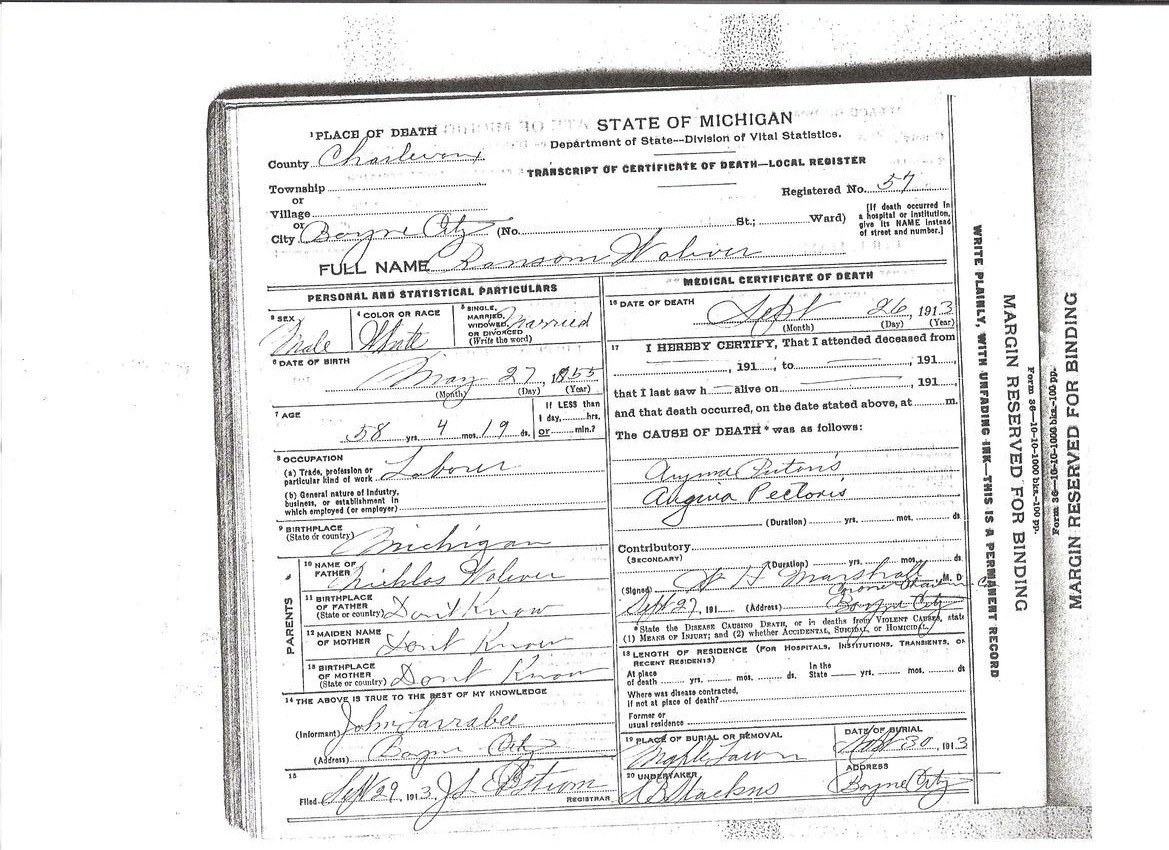 STATE OF MICHIGAN
Department of State—Division of Vital Statistics.
TRANSCRIPT OF CERTIFICATE OF DEATH—LOCAL REGISTER
1 PLACE OF DEATH
County Charlevoix
Township
or
Village
or
City Boyne City (No. St.; Ward)
Registered No. 57
[If death occurred in
a hospital or institution,
give its NAME instead
of street and number.]
FULL NAME Ransom Woliver
PERSONAL AND STATISTICAL PARTICULARS
3 SEX
Male
4 COLOR OR RACE
White
5 SINGLE,
MARRIED,
WIDOWED,
OR DIVORCED
(Write the word)
Married
6 DATE OF BIRTH
May 27, 1855
(Month) (Day) (Year)
7 AGE
58 yrs. 4 mos. 19 ds.
If LESS than
1 day,......hrs.
or......min.?
8 OCCUPATION
(a) Trade, profession or
particular kind of work Laborer
(b) General nature of Industry,
business, or establishment in
which employed (or employer)
9 BIRTHPLACE
(State or country) Michigan
PARENTS
10 NAME OF
FATHER Nicklos Woliver
11 BIRTHPLACE
OF FATHER
(State or country) Dont Know
12 MAIDEN NAME
OF MOTHER Dont Know
13 BIRTHPLACE
OF MOTHER
(State or country) Dont Know
14 THE ABOVE IS TRUE TO THE BEST OF MY KNOWLEDGE
(Informant) John Larrabee
(Address) Boyne City
15
Filed Sept 29, 1913
REGISTRAR
MEDICAL CERTIFICATE OF DEATH
16 DATE OF DEATH
Sept 26, 1913
(Month) (Day) (Year)
17 I HEREBY CERTIFY, That I attended deceased from
, 191 , to , 191 ,
that I last saw h alive on , 191 ,
and that death occurred, on the date stated above, at m.
The CAUSE OF DEATH * was as follows:
Angina Pectoris
(Duration) yrs. mos. ds
Contributory
(SECONDARY)
(Duration) yrs. mos. ds
(Signed) H Marshall M. D
Coroner
Sept 27, 191 (Address) Boyne City
*State the DISEASE CAUSING DEATH, or in deaths from VIOLENT CAUSES, state
(1) MEANS OF INJURY; and (2) whether ACCIDENTAL, SUICIDAL, or HOMICIDAL.
18 LENGTH OF RESIDENCE (FOR HOSPITALS, INSTITUTIONS, TRANSIENTS, OR
RECENT RESIDENTS)
At place
of death yrs. mos. ds.
In the
State yrs. mos. ds
Where was disease contracted,
if not at place of death?
Former or
usual residence
19 PLACE OF BURIAL OR REMOVAL
Maple Lawn
DATE OF BURIAL
Sept 30, 1913
20 UNDERTAKER
ADDRESS
Boyne City
WRITE PLAINLY, WITH UNFADING INK—THIS IS A PERMANENT RECORD
MARGIN RESERVED FOR BINDING
Form 36—10-10-1000 bks.-100 pp.
Form 36—10-10-1000 bks.-100 pp.
MARGIN RESERVED FOR BINDING